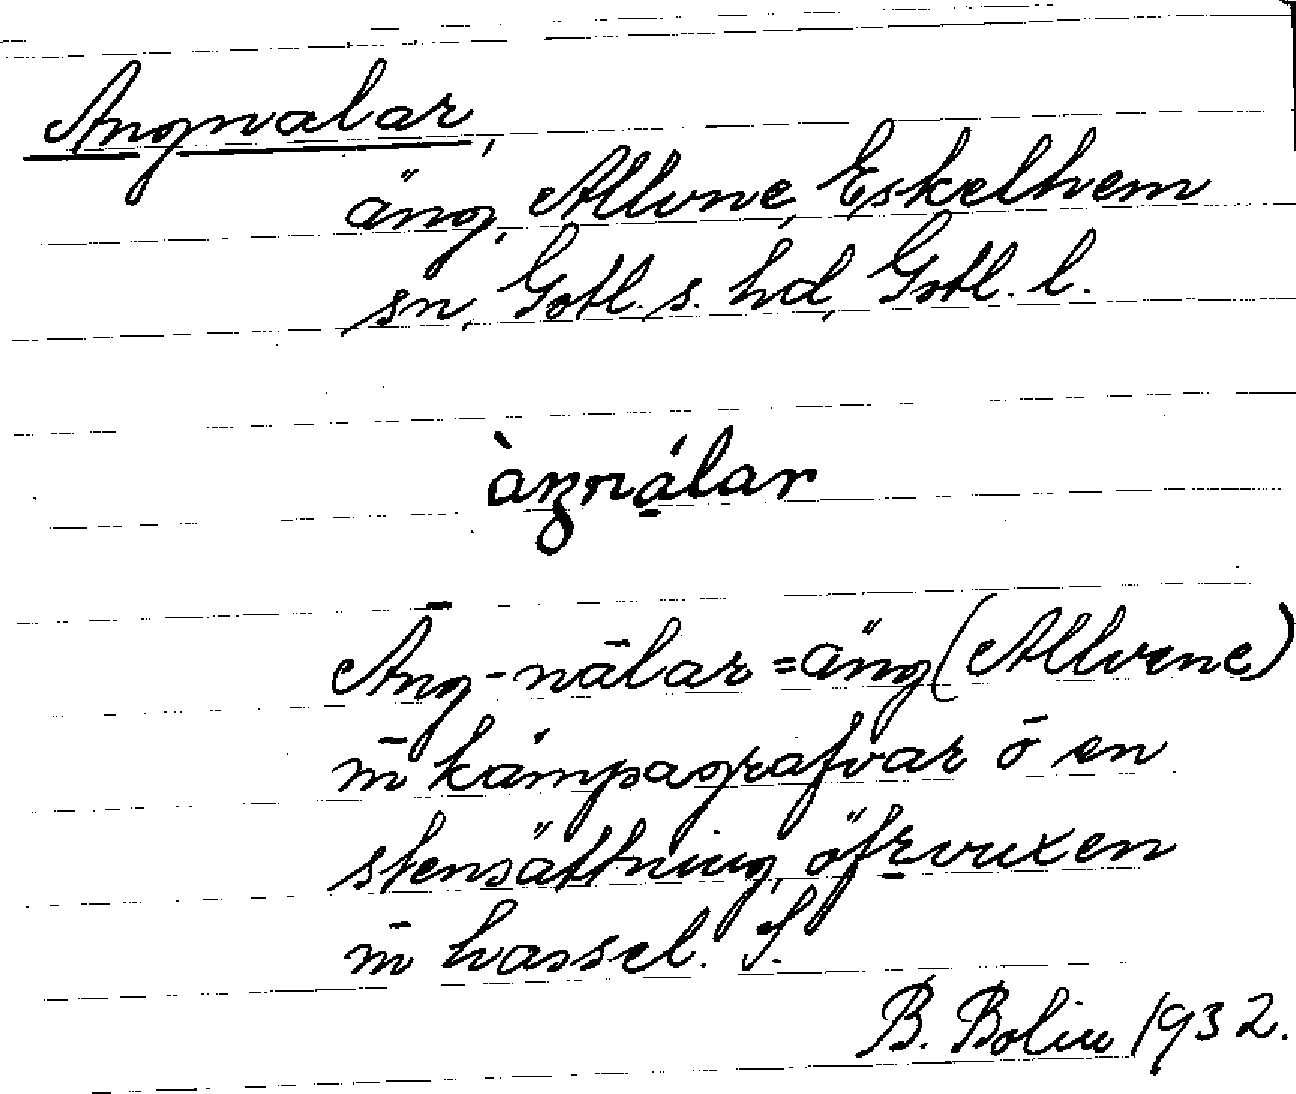 Angnalar,
äng, Allvne, Eskelhem
sn, Gotl. s. hd, Gotl. l.
àŋnálar
Āng-nālar = äng (Allvene)
m̄ kämpagrafvar ō en
stensättning, öfrvuxen
m̄ hassel. S.
B. Bolin 1932.